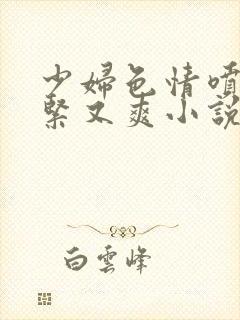 少婦色情噴
緊又爽小説
白雲峰